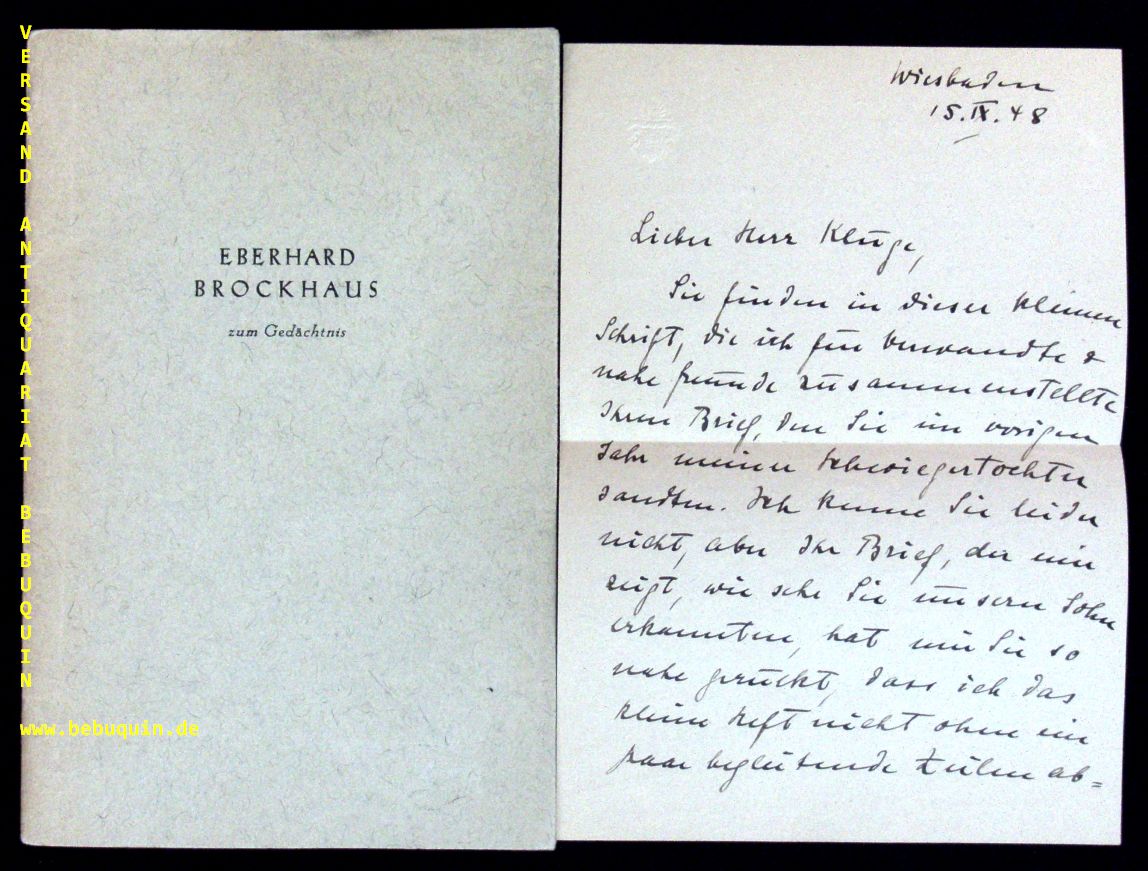 VERSAND ANTIQUARIAT BEBUQUIN
www.bebuquin.de
EBERHARD
BROCKHAUS
zum Gedächtnis
Wiesbaden
15.IX.48
Lieber Herr Kluge,
Sie finden in dieser kleinen
Schrift, die ich für Verwandte &
nahe Freunde zusammenstellte
Ihren Brief, den Sie im vorigen
Jahr meiner Schwiegertochter
sandten. Ich kenne Sie leider
nicht, aber Ihr Brief, der mir
zeigt, wie sehr Sie unsern Sohn
erkannten, hat mir Sie so
nahe gerückt, dass ich das
kleine Heft nicht ohne ein
paar begleitende Zeilen ab=